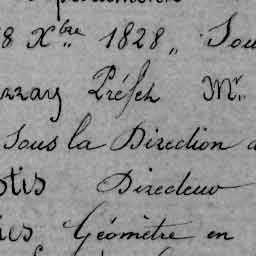 8 Xbre 1828, Sou
zzay Préfet Mr
Sous la Direction d
otis Directeur
Géomètre en